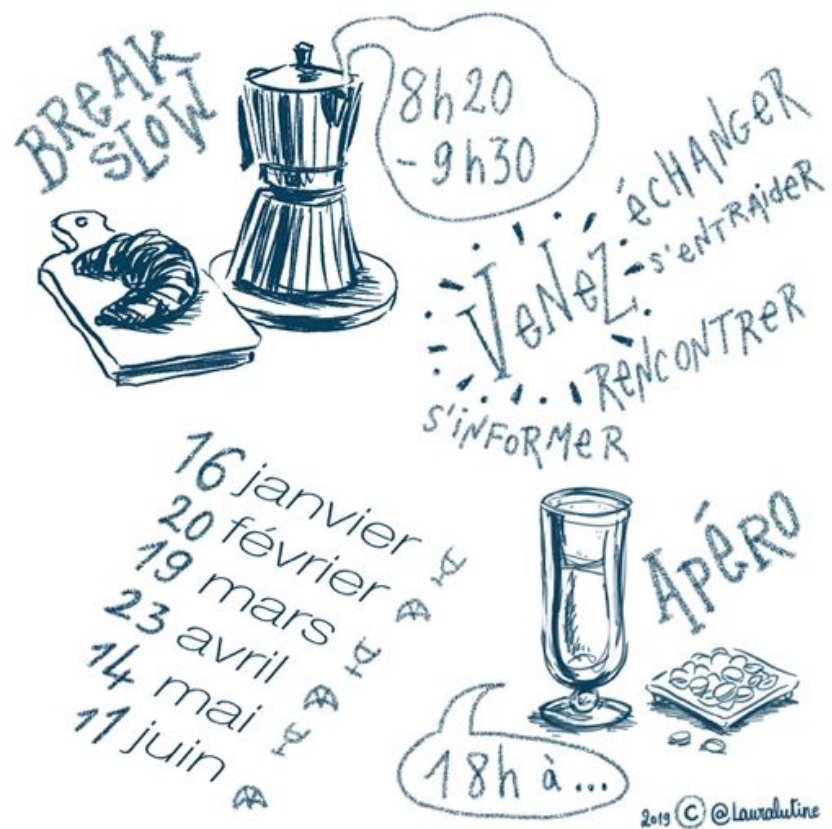 BReAK
SLOW
8h20
-9h30
VeNeZ
éCHANGeR
s'eNTRAideR
ReNCONTReR
s'iNFORMeR
16 janvier
20 février
19 mars
23 avril
14 mai
11 juin
APéRO
18h à...
2019 © @Lauralutine